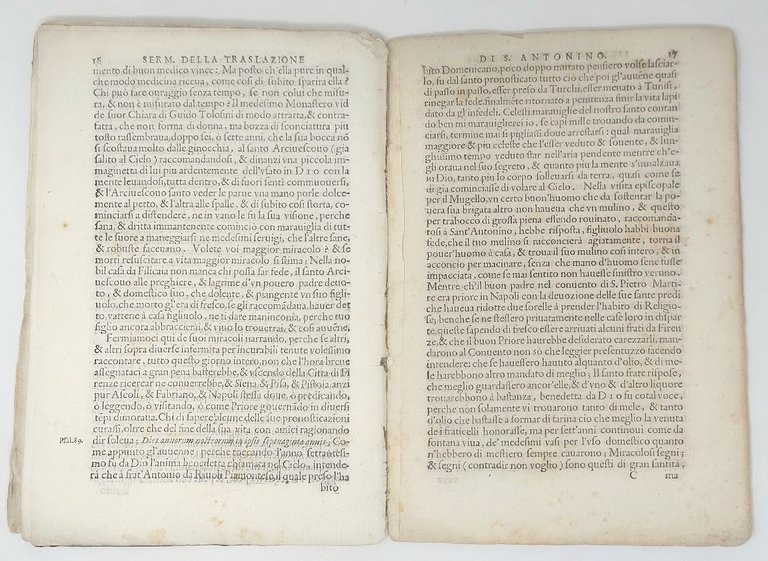 16 SERM. DELLA TRASLAZIONE
mento di buon medico vince: Ma posto ch'ella pure in qual-
che modo medicina riceua, come così di subito sparita ella?
Chi può fare ouraggio senza tempo, se non colui che misu-
ra, & non è misurato dal tempo? Il medesimo Monastero vid
de suor Chiara di Guido Tolosini di modo attratta, & contraf-
fatta, che non forma di donna, ma bozza di sconciatura più
tosto rassembraua, doppo sei, o sette anni, che la sua bocca nó
si scostaua molto dalle ginocchia, al santo Arciuescouo (gia
salito al Cielo) raccomandosi, & dinanzi vna piccola im-
maginetta di lui più ardentemente dell'vsato in DIO con la
mente leuandosi, tutta dentro, & di fuori sentì commuouersi,
& l'Arciuescouo santo veder le parue vna mano porle dolce-
mente al petto, & l'altra alle spalle, & di subito così storta, co-
minciarsi a distendere, ne in vano le fu la sua visione, perche
sana, & dritta immantenente cominciò con marauiglia di tut-
te le suore a maneggiarsi ne medesimi seruigi, che l'altre sane,
& robuste faceuano. Volete voi maggior miracolo? & se
morti resuscitare a vita maggior miracolo si stima: Nella no-
bil casa da Filicaia non manca chi possa far fede, il santo Arci-
uescouo alle preghiere, & lagrime d'vn pouero padre deuo-
to, & domestico suo, che dolente, & piangente vn suo figli-
uolo, che morto gl'era di fresco, se gli raccomãdana, hauer det
to, vattene à casa figliuolo, ne ti dare maninconia, perche tuo
figlio ancora abbraccierai, & viuo lo trouerai, & così auuẽne.
Fermiamoci qui de suoi miracoli narrando, perche se altri,
& altri sopra diuerse infermita per incurabili tenute volessimo
raccontare, tutto questo giorno intero, non che l'hora breue
assegnataci a gran pena batterebbe, & vscendo della Citta di Fi-
renze ricercar ne conuerrebbe, & Siena, & Pisa, & Pistoia, anzi
pur Ascoli, & Fabriano, & Napoli stessa doue, ò predicando,
o leggendo, ò visitando, ò come Priore gouernando in diuersi
tẽpi dimoraua. Chi di sapere alcune delle sue pronosticazioni
curassi, oltre che del fine della sua vita con amici ragionando
Psal.89. dir soleua; Dies annorum nostrorum in ipsis septuaginta annis, Co-
me appunto gl'auuenne; perche toccando l'anno settantesi-
mo fu da Dio l'anima benedetta chiamata nel Cielo, intende-
rà che a frat'Antonio da Riuoli Piamontese, il quale preso l'ha
bito
DI S. ANTONINO. 17
bito Domenicano, poco doppo mutato pensiero volse lasciar-
lo, fu dal santo pronosticato tutto ciò che poi gl'auuẽne quasi
di passo in passo, esser preso da Turchi, esser menato a Tunisi,
rinegar la fede, finalmẽte ritornato a penitenza finir la vita lapi
dato da gl'infedeli. Celesti marauiglie del nostro santo contan
do ben mi marauiglierei io, se capi mille trouando da comin-
ciarsi, termine mai si pigliassi doue arrestarsi: qual marauiglia
maggiore & più celeste che l'esser veduto & souente, & lun-
ghissimo tempo veduto star nell'aria pendente mentre ch'e-
gli oraua nel suo segreto, & quanto più la mente s'innalzaua
in Dio, tanto più lo corpo solleuarsi da terra, quasi come se
di gia cominciasse di volare al Cielo. Nella visita episcopale
per il Mugello, vn certo buon'huomo che da sostentar la po-
uera sua brigata altro non haueua che vn mulino, & questo
per trabocco di grossa piena essendo rouinato, raccomanda-
tosi a Sant'Antonino, hebbe risposta, figliuolo habbi buona
fede, che il tuo mulino si racconcierà agiatamente, torna il
pouer'huomo à casa, & troua il suo mulino così intero, & in
acconcio per macinare, senza che mano d'huomo sene fusse
impacciata, come se mai sentito non hauesse sinistro veruno.
Mentre ch'il buon padre nel conuento di S. Pietro Marti-
re era priore in Napoli con la deuozione delle sue sante predi
che haueua ridotte due sorelle à prender l'habito di Religio-
se, benche se ne stessero priuatamente nelle case loro in dispar
te, queste sapendo di fresco essere arriuati alcuni frati da Firen-
ze, & che il buon Priore harebbe desiderato carezzarli, man-
darono al Conuento non sò che leggier presentuzzo facendo
intendere: che se hauessero hauuto alquanto d'olio, & di me-
le harebbono altro mandato di meglio; Il santo frate rispose,
che meglio guardassero ancor'elle, & d'vno & d'altro liquore
trouarebbono à bastanza, benedetta da DIO fu cotal voce,
perche non solamente vi trouarono tanto di mele, & tanto
d'olio che bastasse à formar di farina cio che meglio la venuta
de i fraticelli honorasse, ma per sett'anni continoui come da
fontana viua, de' medesimi vasi per l'vso domestico quanto
n'hebbero di mestiero sempre cauarono; Miracolosi segni;
& segni (contradir non voglio) sono questi di gran santità,
C ma